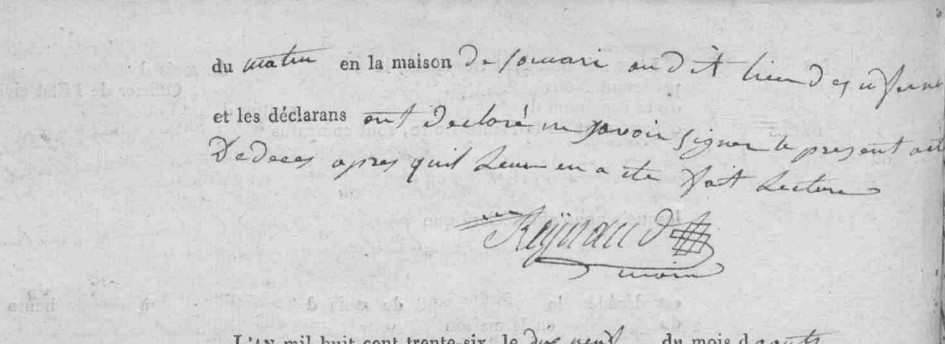 du matin en la maison de son mari au dit lieu des
et les déclarans ont declaré ne savoir signer le present acte
De deces apres quil Leur en a ete fait Lecture
Reynaud
maire
L'AN mil huit cent trente-six, le dix neuf du mois d